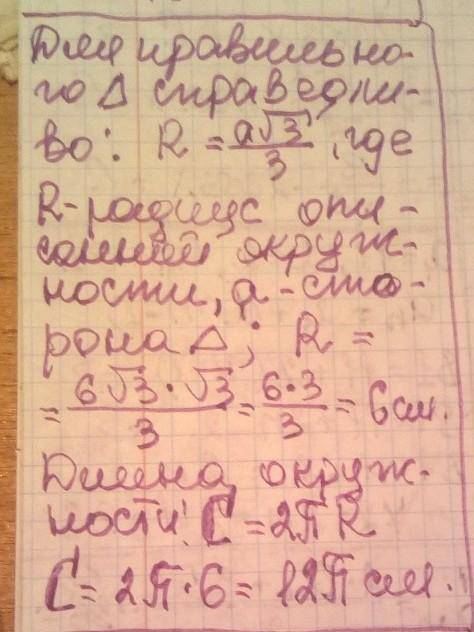 Для правильно-
го Δ справедли-
во: R = a√3/3, где
R-радиус опи-
санной окруж-
ности, a-сто-
рона Δ; R =
= 6√3·√3/3 = 6·3/3 = 6см.
Длина окруж-
ности: C = 2πR
C = 2π·6 = 12π см.